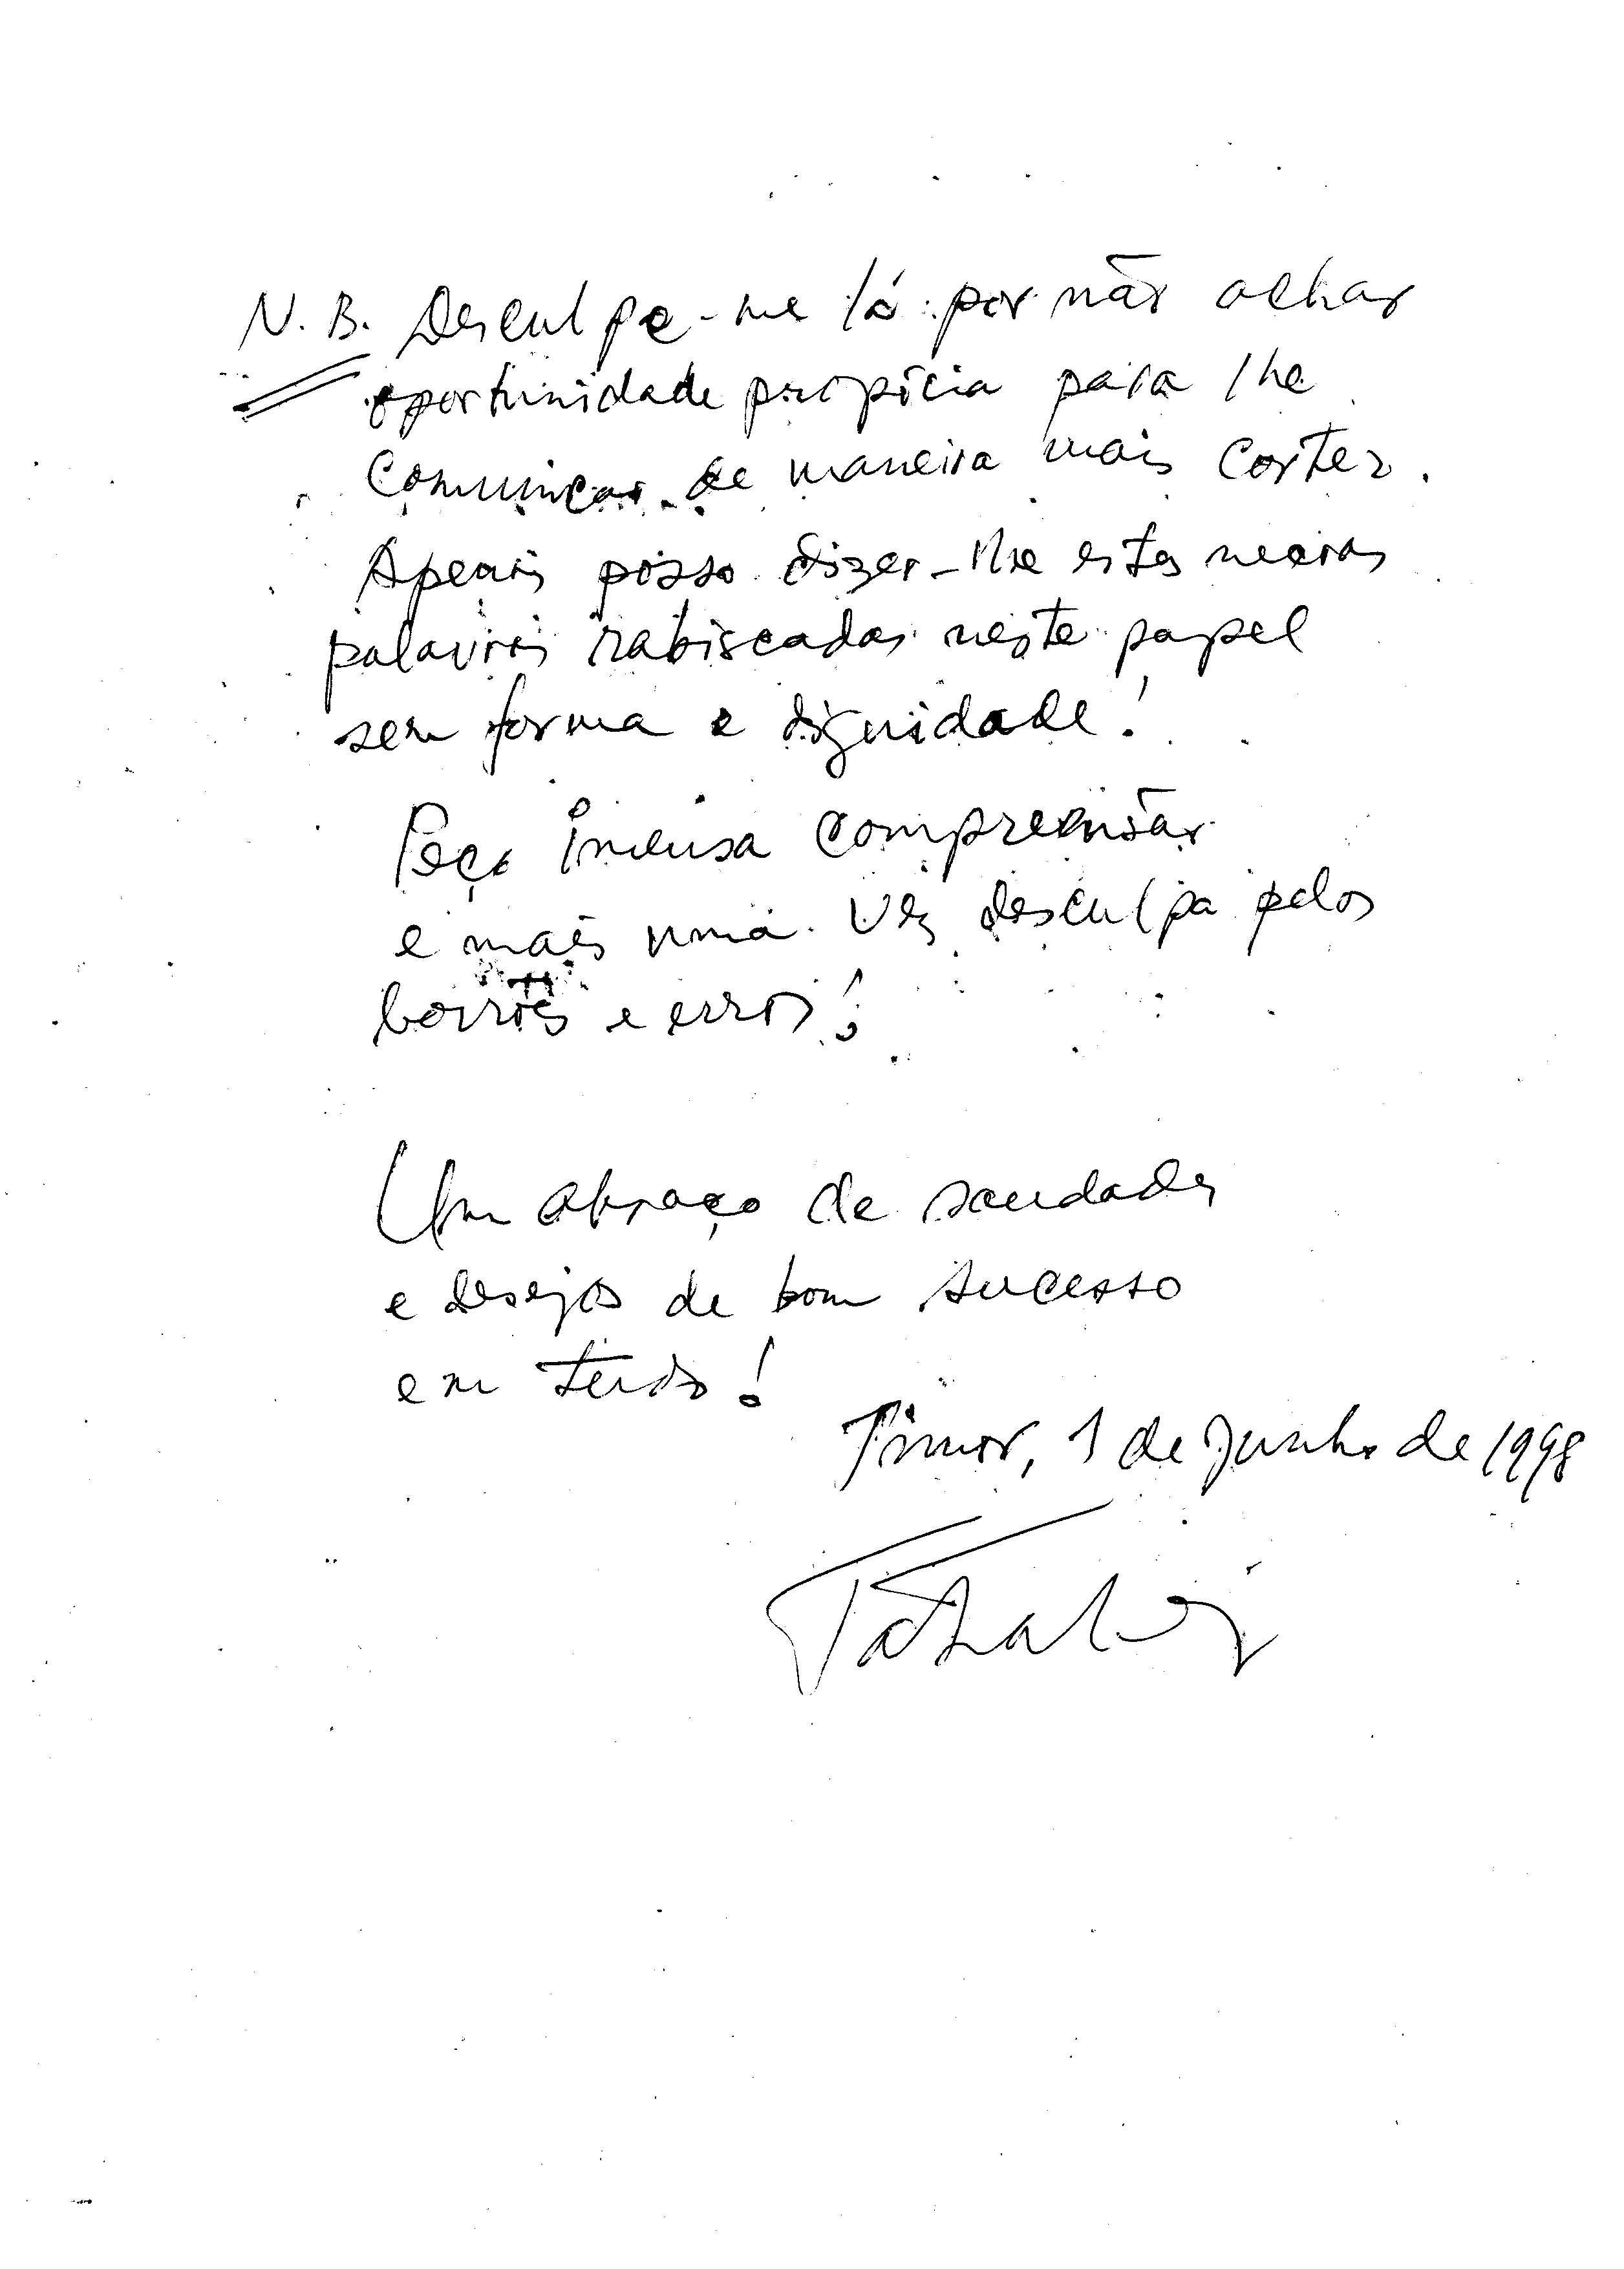 N. B. Desculpe-me lá por não achar
oportunidade propícia para lhe
comunicar de maneira mais cortez.
Apenas posso dizer-lhe estas meras
palavras rabiscadas neste papel
sem forma e dignidade!
Peço imensa compreensão
e mais uma vez desculpa pelos
borrões e erros!
Um abraço de saudades
e desejos de bom sucesso
em tudo!
Timor, 1 de Junho de 1998